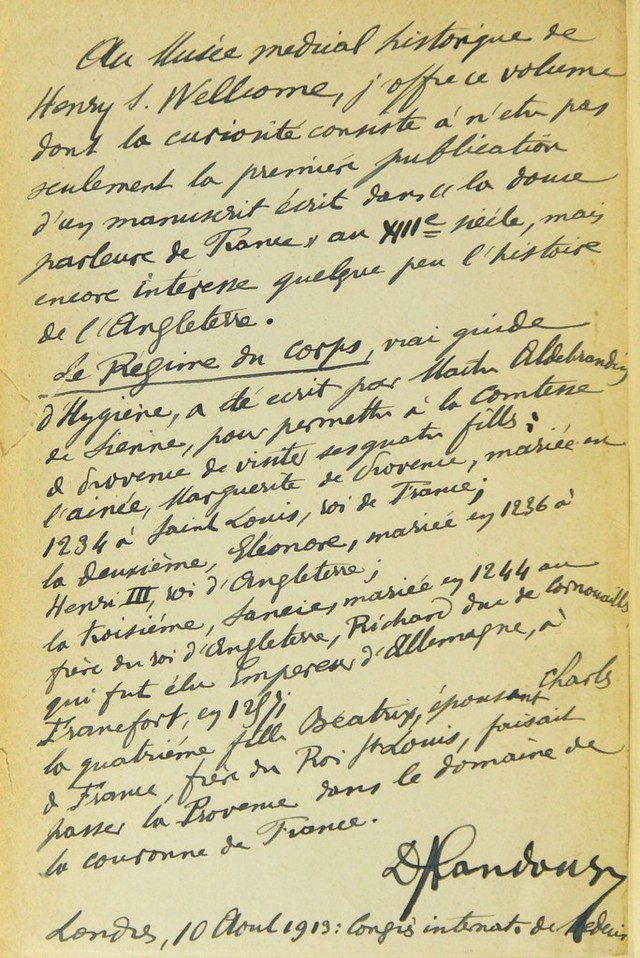 Au Musée medical historique de
Henry S. Wellcome, j'offre ce volume
dont la curiosité consiste à n'etre pas
seulement la première publication
d'un manuscrit écrit dans « la douce
parleure de France » au XIIIe siècle, mais
encore intéresse quelque peu l'histoire
de l'Angleterre.
Le Régime du corps, vrai guide
d'Hygiène, a été écrit par Maitre Aldebrandin
de Sienne, pour permettre à la Comtesse
de Provence de visiter ses quatre filles:
l'ainée, Marguerite de Provence, mariée en
1234 à Saint Louis, roi de France;
la deuxième, Eléonore, mariée en 1236 à
Henri III, roi d'Angleterre;
la troisième, Sancie, mariée en 1244 au
frère du roi d'Angleterre, Richard duc de Cornouailles,
qui fut élu Empereur d'Allemagne, à
Francfort, en 1257;
la quatrième fille Béatrix, épousant Charles
de France, frère du Roi St Louis, faisait
passer la Provence dans le domaine de
la couronne de France.
Dr Landouzy
Londres, 10 Aout 1913: Congrès internat. de Médecine